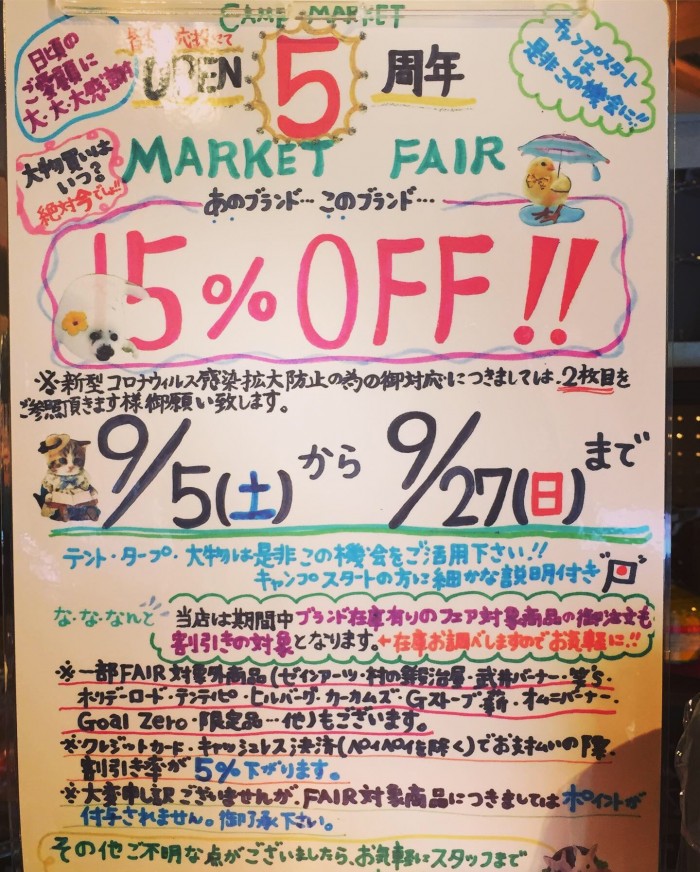 CAMP MARKET
日頃の
ご愛顧に
大・大・大感謝
OPEN 5周年
キャンプスタート
は
是非この機会に!!
大物買いは
いつ?
絶対今でしょ!!
MARKET FAIR
あのブランド… このブランド…
15% OFF!!
※新型コロナウィルス感染拡大防止の為の御対応につきましては、2枚目を
ご参照頂きます様御願い致します。
9/5(土)から 9/27(日)まで
テント・タープ・大物は是非この機会をご活用下さい!!
キャンプスタートの方に細かな説明付き
な・な・なんと 当店は期間中ブランド在庫有りのフェア対象商品の御注文も
割引きの対象となります。←在庫お調べしますのでお気軽に!!
※一部FAIR対象外商品(ゼインアーツ・村の鍛冶屋・武井バーナー・
ホリデーロード・テンティピ・ヒルバーグ・カーカムズ・Gストーブ・薪・オムニバーナー・
Goal Zero・限定品…他)もございます。
※クレジットカード・キャッシュレス決済(ペイペイを除く)でお支払いの際、
割引き率が5%下がります。
※大変申し訳ございませんが、FAIR対象商品につきましてはポイントが
付与されません。御了承下さい。
その他ご不明な点がございましたら、お気軽にスタッフまで